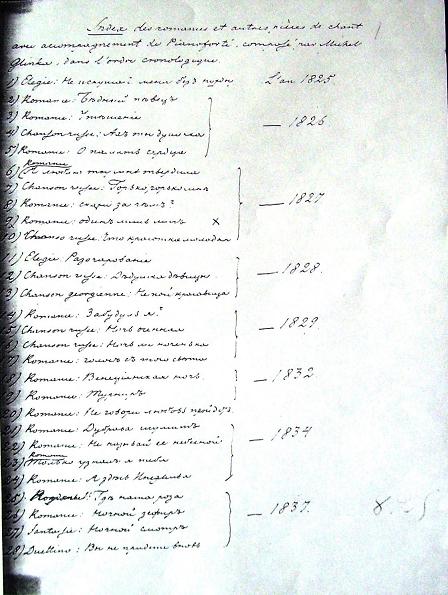 Index des romances et autres pièces de chant
avec accompagnement de Pianoforté, composés par Michel
Glinka, dans l'ordre cronologique.
1) Elegie: Не искушай меня безъ нужды L'an 1825
2) Romance: Бѣдный пѣвецъ
3) Romance: Утѣшение — 1826
4) Chanson russe: Ахъ ты душечка
5) Romance: О память сердца
Romance
6) Я люблю ты мнѣ твердила
7) Chanson russe: Горько, горько мнѣ
8) Romance: скажи за чѣмъ? — 1827
9) Romance: одинъ лишь мигъ ×
10) Chanson russe: Что красотка молодая
11) Elegie Разочарование
12) Chanson russe: Дѣдушка дѣвицы — 1828.
13) Chanson georgienne: Не пой красавица
14) Romance: Забуду ль я?
15) Chanson russe: Ночь осенняя — 1829
16) Chanson russe: Ночь ли ноченька
17) Romance: голосъ съ того свѣта
18) Romance: Венеціянская ночь. — 1832
19) Romance:
20) Romance: Не говори любовь пройдетъ.
21) Romance: Дубрава шумитъ
22) Romance: Не называй ее небесной — 1834
Romance
23) Только узналъ я тебя
24) Romance: Я здѣсь Инезилья
25) Гдѣ наша роза
26) Romance: Ночной зефиръ — 1837.
27) Fantasie: Ночной смотръ
28) Duettino: Вы не придете вновь